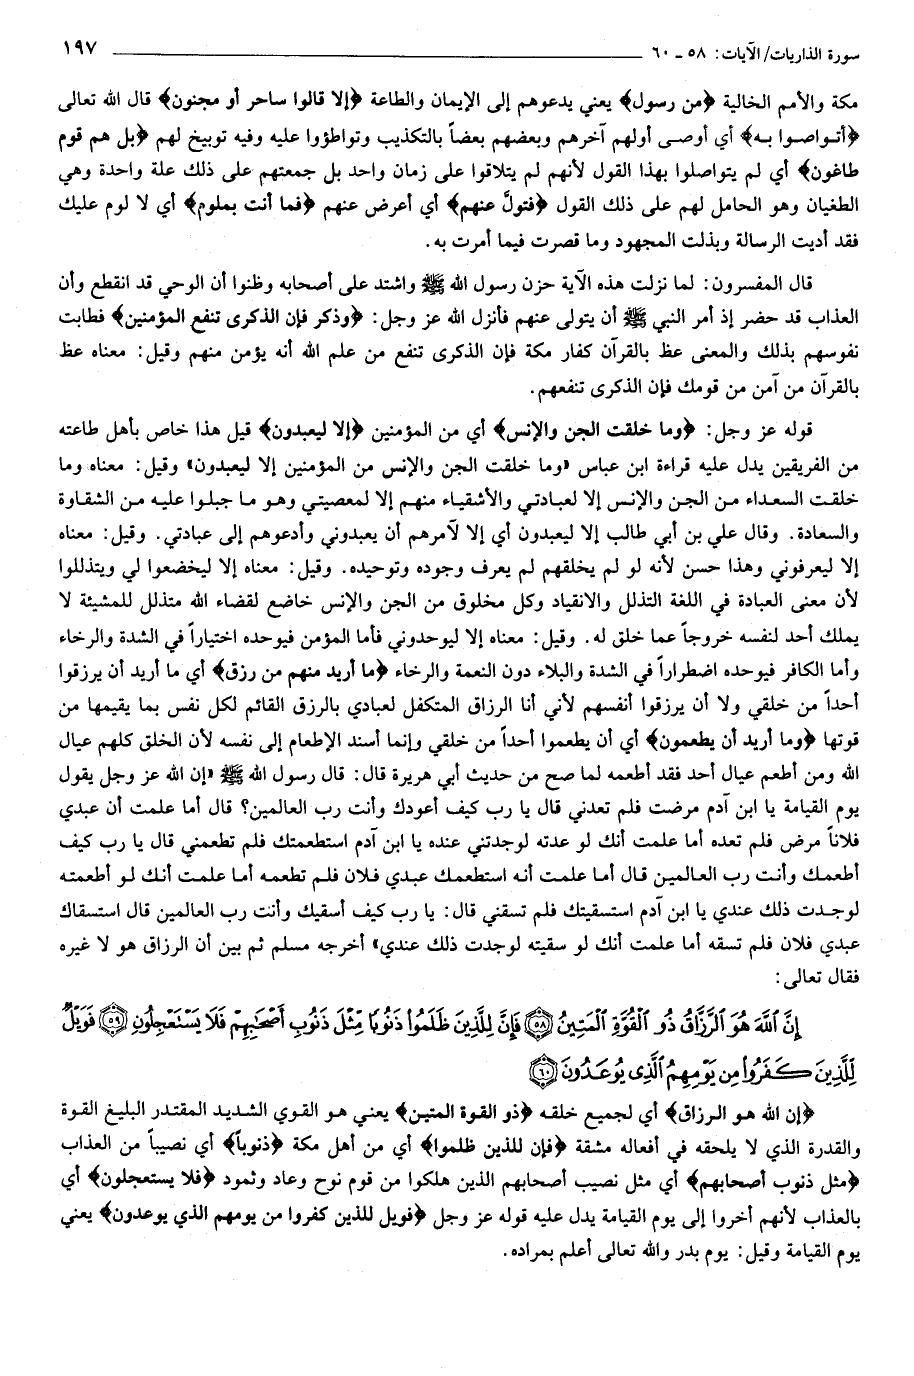 سورة الذاريات/ الآيات: ٥٨ ـ ٦٠ ١٩٧
مكة والأمم الخالية ﴿من رسول﴾ يعني يدعوهم إلى الإيمان والطاعة ﴿إلا قالوا ساحر أو مجنون﴾ قال الله تعالى
﴿أتواصوا به﴾ أي أوصى أولهم آخرهم وبعضهم بعضاً بالتكذيب وتواطؤوا عليه وفيه توبيخ لهم ﴿بل هم قوم
طاغون﴾ أي لم يتواصلوا بهذا القول لأنهم لم يتلاقوا على زمان واحد بل جمعتهم على ذلك علة واحدة وهي
الطغيان وهو الحامل لهم على ذلك القول ﴿فتولَّ عنهم﴾ أي أعرض عنهم ﴿فما أنت بملوم﴾ أي لا لوم عليك
فقد أديت الرسالة وبذلت المجهود وما قصرت فيما أمرت به.
قال المفسرون: لما نزلت هذه الآية حزن رسول الله ﷺ واشتد على أصحابه وظنوا أن الوحي قد انقطع وأن
العذاب قد حضر إذ أمر النبي ﷺ أن يتولى عنهم فأنزل الله عز وجل: ﴿وذكر فإن الذكرى تنفع المؤمنين﴾ فطابت
نفوسهم بذلك والمعنى عظ بالقرآن كفار مكة فإن الذكرى تنفع من علم الله أنه يؤمن منهم وقيل: معناه عظ
بالقرآن من آمن من قومك فإن الذكرى تنفعهم.
قوله عز وجل: ﴿وما خلقت الجن والإنس﴾ أي من المؤمنين ﴿إلا ليعبدون﴾ قيل هذا خاص بأهل طاعته
من الفريقين يدل عليه قراءة ابن عباس «وما خلقت الجن والإنس من المؤمنين إلا ليعبدون» وقيل: معناه وما
خلقت السعداء من الجن والإنس إلا لعبادتي والأشقياء منهم إلا لمعصيتي وهو ما جبلوا عليه من الشقاوة
والسعادة. وقال علي بن أبي طالب إلا ليعبدون أي إلا لآمرهم أن يعبدوني وأدعوهم إلى عبادتي. وقيل: معناه
إلا ليعرفوني وهذا حسن لأنه لو لم يخلقهم لم يعرف وجوده وتوحيده. وقيل: معناه إلا ليخضعوا لي ويتذللوا
لأن معنى العبادة في اللغة التذلل والانقياد وكل مخلوق من الجن والإنس خاضع لقضاء الله متذلل للمشيئة لا
يملك أحد لنفسه خروجاً عما خلق له. وقيل: معناه إلا ليوحدوني فأما المؤمن فيوحده اختياراً في الشدة والرخاء
وأما الكافر فيوحده اضطراراً في الشدة والبلاء دون النعمة والرخاء ﴿ما أريد منهم من رزق﴾ أي ما أريد أن يرزقوا
أحداً من خلقي ولا أن يرزقوا أنفسهم لأني أنا الرزاق المتكفل لعبادي بالرزق القائم لكل نفس بما يقيمها من
قوتها ﴿وما أريد أن يطعمون﴾ أي أن يطعموا أحداً من خلقي وإنما أسند الإطعام إلى نفسه لأن الخلق كلهم عيال
الله ومن أطعم عيال أحد فقد أطعمه لما صح من حديث أبي هريرة قال: قال رسول الله ﷺ «إن الله عز وجل يقول
يوم القيامة يا ابن آدم مرضت فلم تعدني قال يا رب كيف أعودك وأنت رب العالمين؟ قال أما علمت أن عبدي
فلاناً مرض فلم تعده أما علمت أنك لو عدته لوجدتني عنده يا ابن آدم استطعمتك فلم تطعمني قال يا رب كيف
أطعمك وأنت رب العالمين قال أما علمت أنه استطعمك عبدي فلان فلم تطعمه أما علمت أنك لو أطعمته
لوجدت ذلك عندي يا ابن آدم استسقيتك فلم تسقني قال: يا رب كيف أسقيك وأنت رب العالمين قال استسقاك
عبدي فلان فلم تسقه أما علمت أنك لو سقيته لوجدت ذلك عندي» أخرجه مسلم ثم بين أن الرزاق هو لا غيره
فقال تعالى:
إِنَّ ٱللَّهَ هُوَ ٱلرَّزَّاقُ ذُو ٱلْقُوَّةِ ٱلْمَتِينُ ۝٥٨ فَإِنَّ لِلَّذِينَ ظَلَمُوا۟ ذَنُوبًا مِّثْلَ ذَنُوبِ أَصْحَٰبِهِمْ فَلَا يَسْتَعْجِلُونِ ۝٥٩ فَوَيْلٌ
لِّلَّذِينَ كَفَرُوا۟ مِن يَوْمِهِمُ ٱلَّذِى يُوعَدُونَ ۝٦٠
﴿إن الله هو الرزاق﴾ أي لجميع خلقه ﴿ذو القوة المتين﴾ يعني هو القوي الشديد المقتدر البليغ القوة
والقدرة الذي لا يلحقه في أفعاله مشقة ﴿فإن للذين ظلموا﴾ أي من أهل مكة ﴿ذنوباً﴾ أي نصيباً من العذاب
﴿مثل ذنوب أصحابهم﴾ أي مثل نصيب أصحابهم الذين هلكوا من قوم نوح وعاد وثمود ﴿فلا يستعجلون﴾ أي
بالعذاب لأنهم أخروا إلى يوم القيامة يدل عليه قوله عز وجل ﴿فويل للذين كفروا من يومهم الذي يوعدون﴾ يعني
يوم القيامة وقيل: يوم بدر والله تعالى أعلم بمراده.